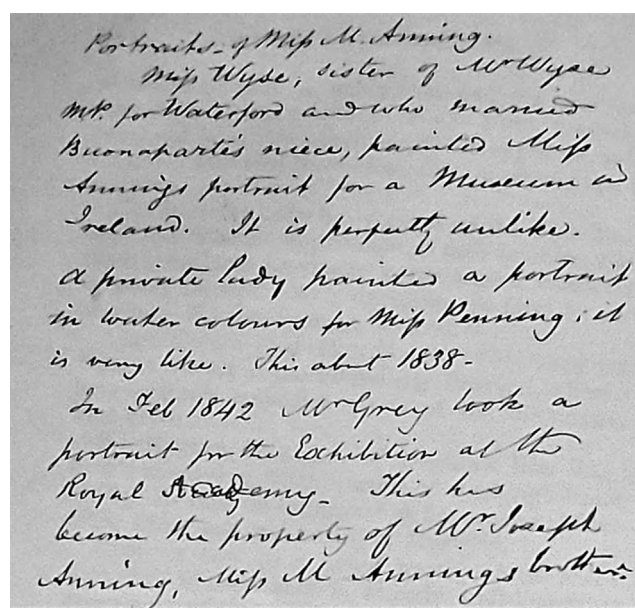 Portraits of Miss M. Anning.
Miss Wyse, sister of Mr Wyse
MP. for Waterford and who married
Buonaparte's niece, painted Miss
Annings portrait for a Museum in
Ireland. It is perfectly unlike.
A private lady painted a portrait
in water colours for Miss Penning; it
is very like. This abt 1838-
In Feb 1842 Mr Grey took a
portrait for the Exhibition at the
Royal Academy_ This has
become the property of Mr. Joseph
Anning, Miss M Annings brother.